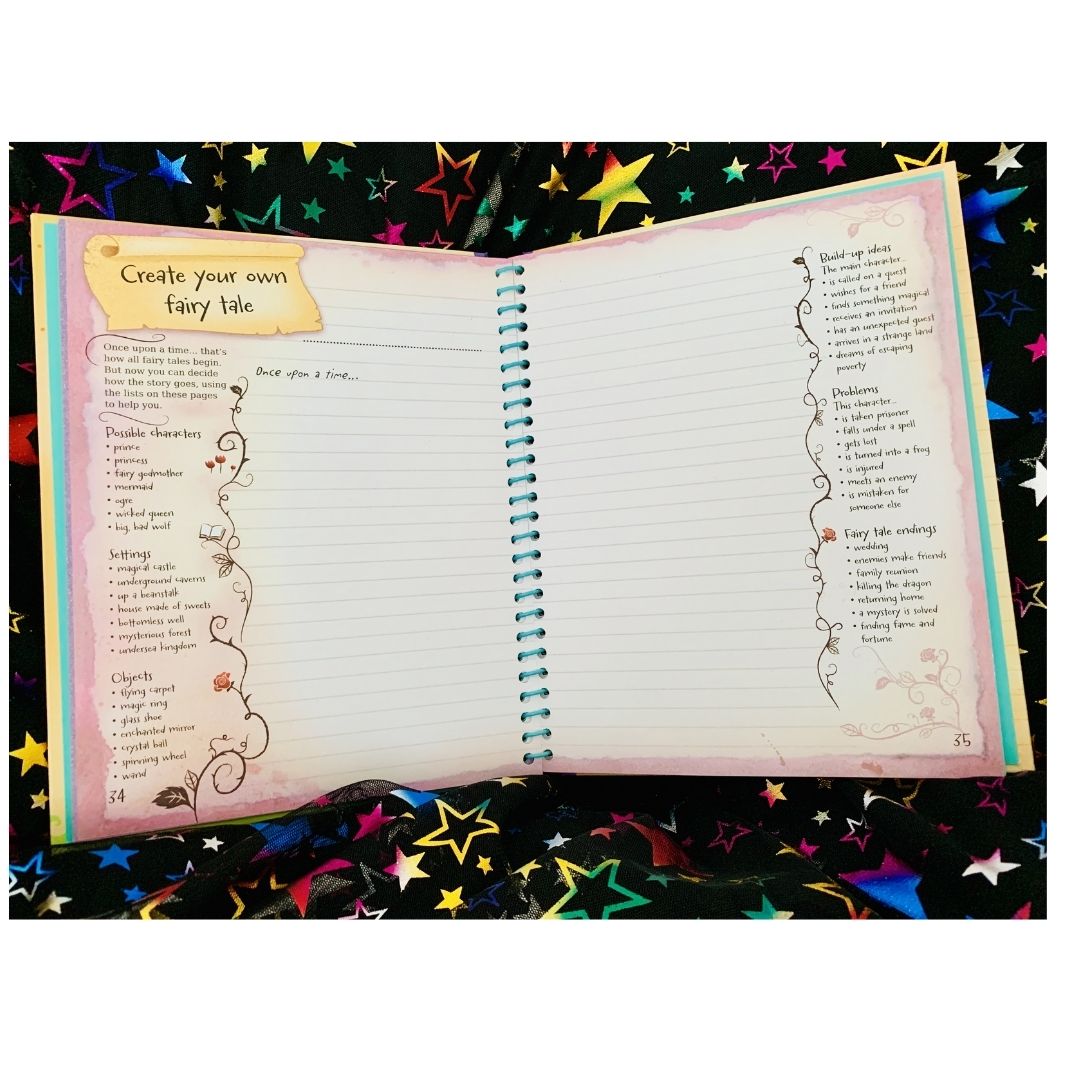 Create your own
fairy tale
Once upon a time... that's
how all fairy tales begin.
But now you can decide
how the story goes, using
the lists on these pages
to help you.
Possible characters
• prince
• princess
• fairy godmother
• mermaid
• ogre
• wicked queen
• big, bad wolf
Settings
• magical castle
• underground caverns
• up a beanstalk
• house made of sweets
• bottomless well
• mysterious forest
• undersea kingdom
Objects
• flying carpet
• magic ring
• glass shoe
• enchanted mirror
• crystal ball
• spinning wheel
• wand
34
Once upon a time...
Build-up ideas
The main character...
• is called on a quest
• wishes for a friend
• finds something magical
• receives an invitation
• has an unexpected guest
• arrives in a strange land
• dreams of escaping
poverty
Problems
This character...
• is taken prisoner
• falls under a spell
• gets lost
• is turned into a frog
• is injured
• meets an enemy
• is mistaken for
someone else
Fairy tale endings
• wedding
• enemies make friends
• family reunion
• killing the dragon
• returning home
• a mystery is solved
• finding fame and
fortune
35